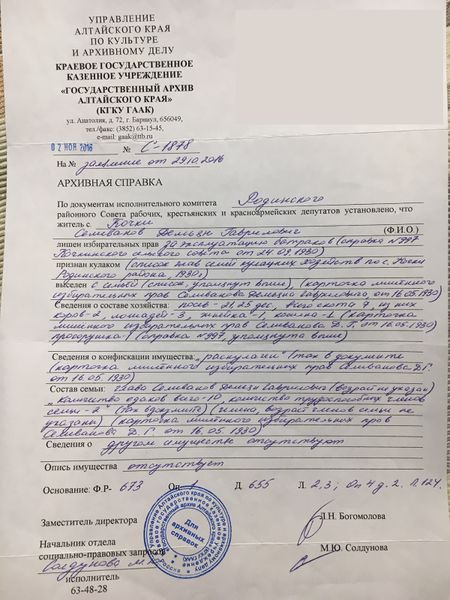 УПРАВЛЕНИЕ
АЛТАЙСКОГО КРАЯ
ПО КУЛЬТУРЕ
И АРХИВНОМУ ДЕЛУ
КРАЕВОЕ ГОСУДАРСТВЕННОЕ
КАЗЕННОЕ УЧРЕЖДЕНИЕ
«ГОСУДАРСТВЕННЫЙ АРХИВ
АЛТАЙСКОГО КРАЯ»
(КГКУ ГААК)
ул. Анатолия, д. 72, г. Барнаул, 656049,
тел./факс: (3852) 63-15-45,
e-mail: gaak@ttb.ru
02 НОЯ 2016 № С-1878
На № заявление от 29.10.2016
АРХИВНАЯ СПРАВКА
По документам исполнительного комитета Родинского
районного Совета рабочих, крестьянских и красноармейских депутатов установлено, что
житель с. Кочки
Селиванов Дементий Гаврилович (Ф.И.О.)
лишен избирательных прав за эксплуатацию батраков (справка №997
Кочкинского сельского совета от 24.09.1930)
признан кулаком (список глав семей кулацких хозяйств по с. Кочки
Родинского района, 1930г.)
выселен с семьей (список, упомянут выше), (карточка лишённого
избирательных прав Селиванова Дементия Гавриловича от 16.05.1930)
Сведения о составе хозяйства: посев - 21,25 дес., скота 7, из них
коров-2, лошадей-3, жнейка-1, косилка-1 (карточка
лишённого избирательных прав Селиванова Д.Г. от 16.05.1930)
(справка №997, упомянута выше)
Сведения о конфискации имущества: „раскулачен" (так в документе)
(карточка лишённого избирательных прав Селиванова Д.Г.
от 16.05.1930)
Состав семьи: глава Селиванов Дементий Гаврилович (возраст не указан)
„количество едоков всего-10, количество трудоспособных членов
семьи-2" (так в документе) (имена, возраст членов семьи не
указаны) (карточка лишённого избирательных прав
Селиванова Д.Г. от 16.05.1930)
Сведения о другом имуществе отсутствуют
Опись имущества отсутствует
Основание: Ф.Р- 673 Оп. 1 Д. 655 Л. 2,3; Оп 4 д. 2. Л.124.
Заместитель директора Л.Н. Богомолова
Начальник отдела
социально-правовых запросов М.Ю. Солдунова
Солдунова М.Ю.
исполнитель
63-48-28
Для
архивных
справок